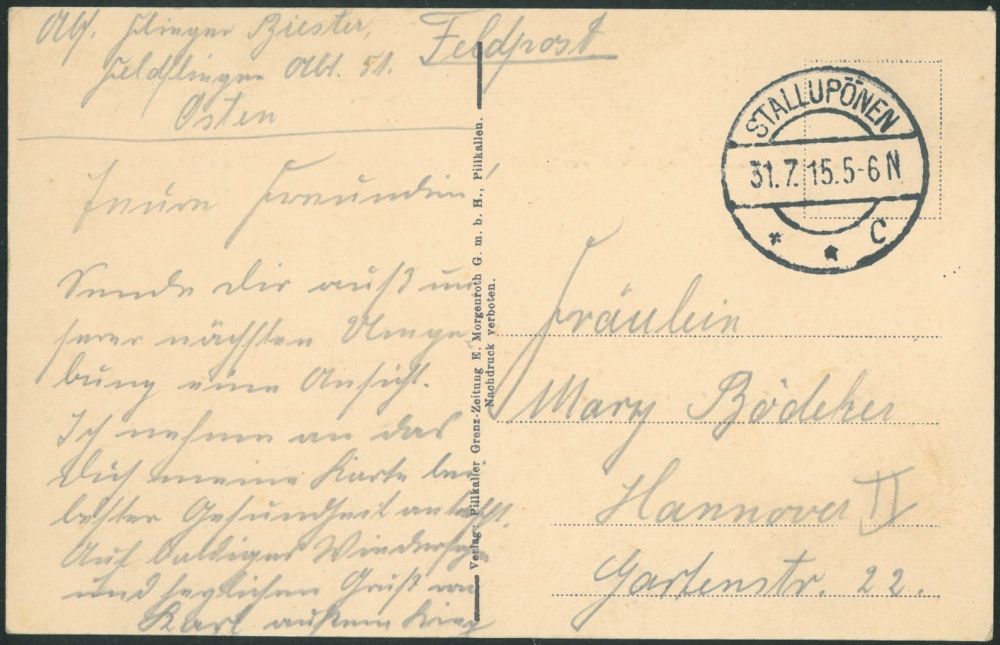 Abs. Flieger Biester,
Feldflieger Abt. 51.
Osten
Feldpost
Teure Freundin!
Sende Dir auß un
serer nächsten Umge
bung eine Ansicht.
Ich nehme an das
Dich meine Karte bei
bester Gesundheit antrifft.
Auf baldiges Wiedersehn
und herzlichen Gruß von
Karl außem Krieg
Verlag: Pillkaller Grenz-Zeitung E. Morgenroth G. m. b. H., Pillkallen.
Nachdruck verboten.
STALLUPÖNEN
31.7.15.5-6 N
* * C
Fräulein
Mary Bödeker
Hannover II
Gartenstr. 22.